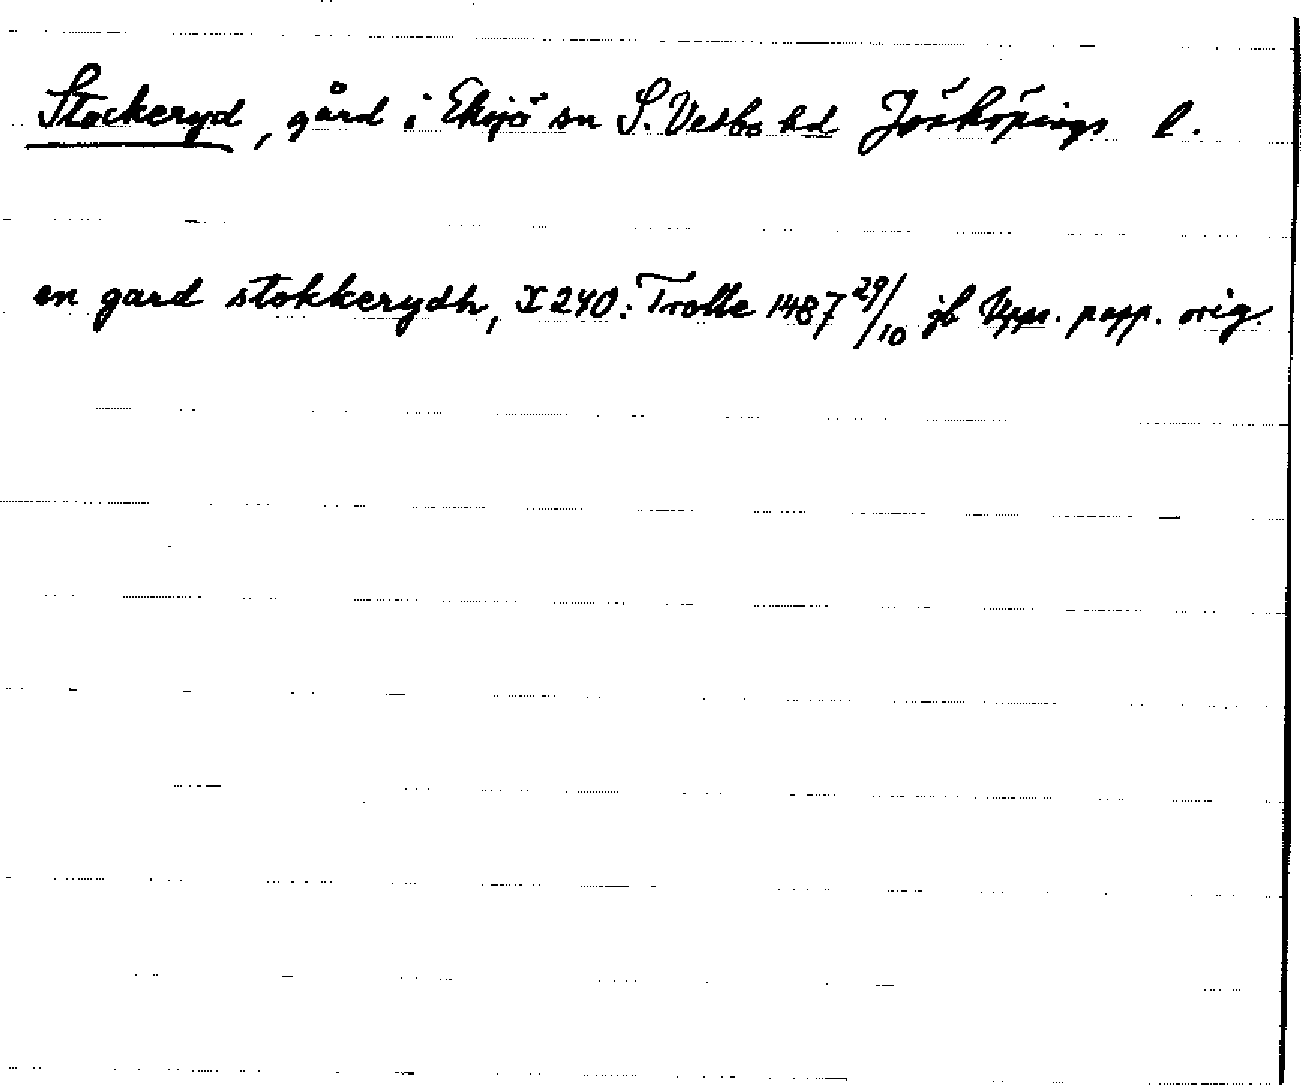 Stockeryd, gård i Eksjö sn S. Vedbo hd Jönköpings l.
en gard stokkerydh, X 240: Trolle 1487 29/10 jb Upps. papp. orig.